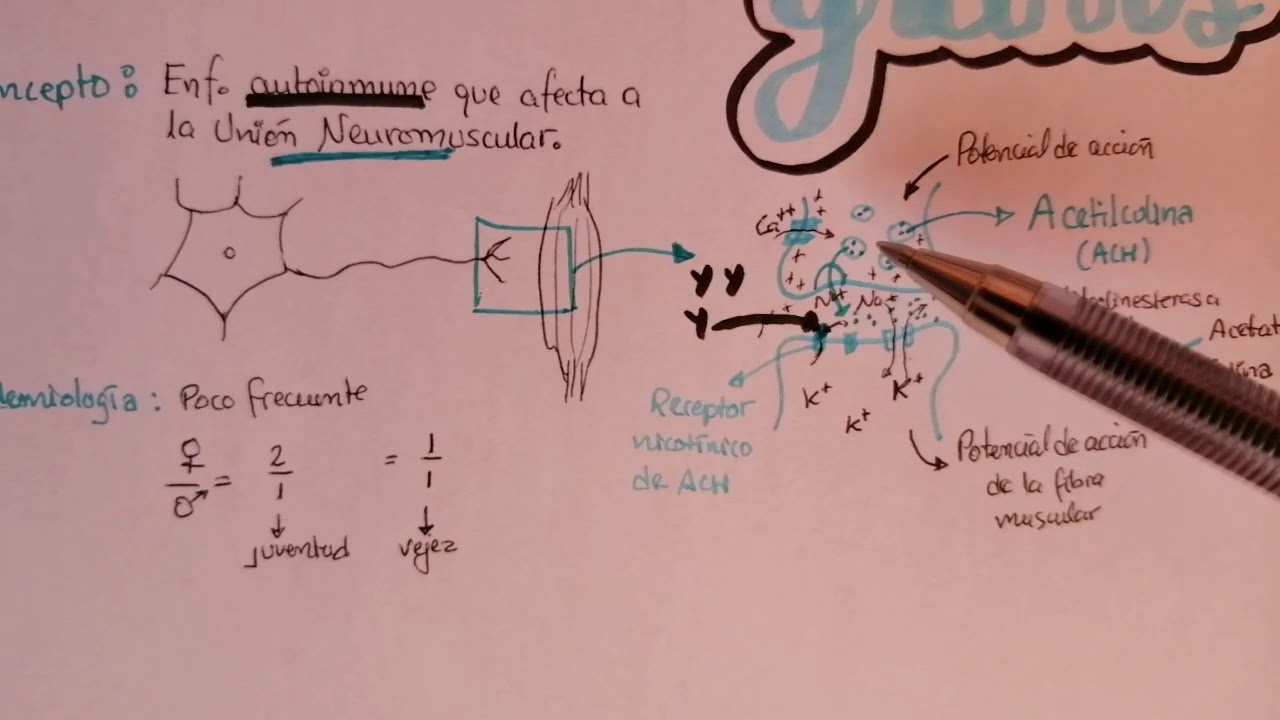 gravis
ncepto: Enf. autoinmune que afecta a
la Unión Neuromuscular.
Potencial de acción
Ca++
Acetilcolina
(ACH)
Y Y
Y
Na+ Na+
linesterasa
Acetat
ina
K+ K+
K+
Receptor
nicotínico
de ACH
Potencial de acción
de la fibra
muscular
demiología: Poco frecuente
♀/♂ = 2/1 = 1/1
juventud vejez